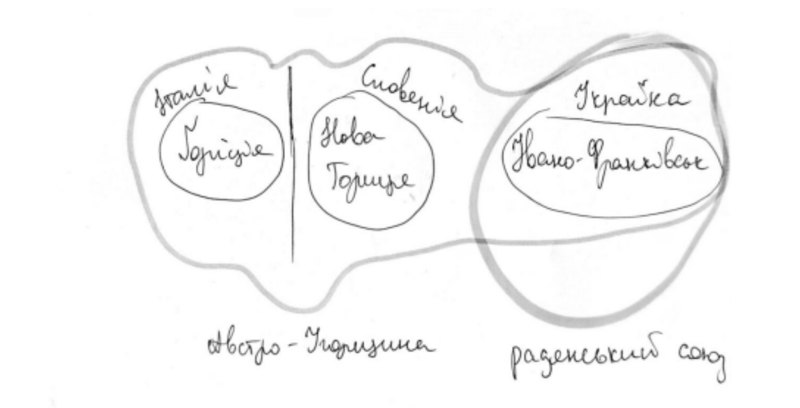 Італія
Горіція
Словенія
Нова
Горица
Україна
Івано-Франківськ
Австро-Угорщина
радянський союз